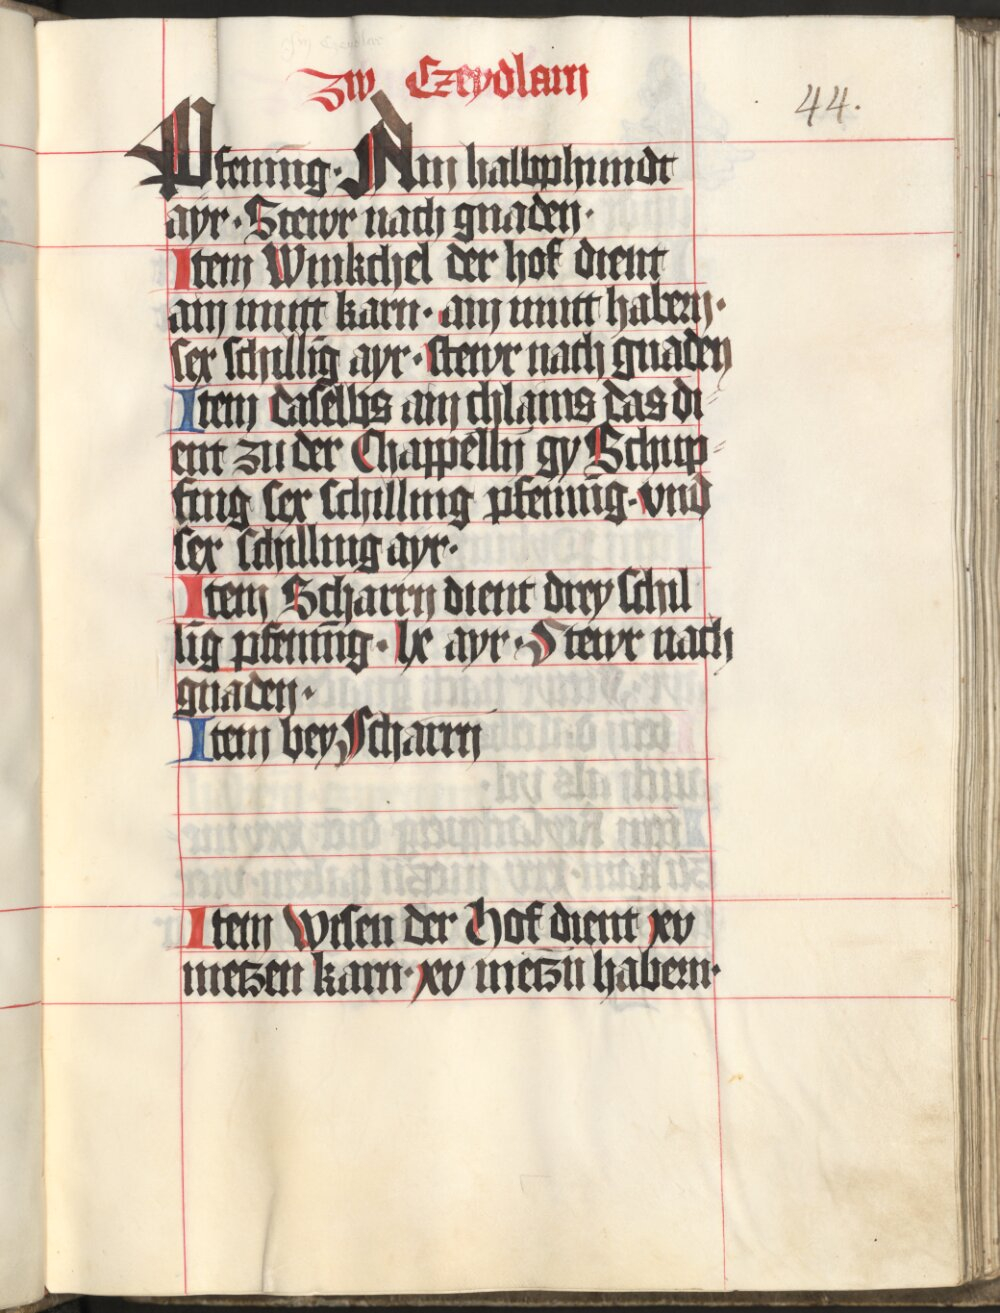 zw Czeydlarn
44.
Pfenīng · Ain halbphundt
ayr · Stewr nach gnaden ·
Item Winkchel der hof dient
ain mutt karn · ain mutt habern ·
sex schillīg ayr · stewr nach gnaden
Item daselbs ain chlains das di
ent zu der Chappelln gy Schup
fing sex schilling pfennīg · vnd
sex schilling ayr ·
Item Scharrn dient drey schil
līg pfenīng · lx ayr · Stewr nach
gnaden ·
Item bey Scharrn
Item Wisen der Hof dient xv
metzen karn · xv metzn habern ·